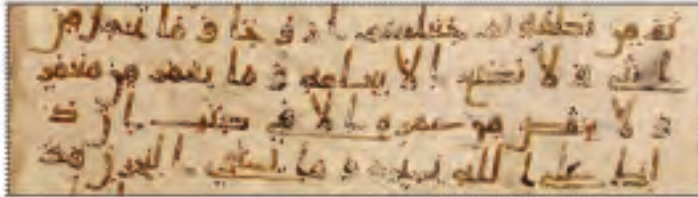 ثم من نطفه ثم جعلكم ازوجا و ما تحمل من
انثى و لا تضع الا بعلمه و ما يعمر من معمر
و لا ينقص من عمره الا في كتب ان ذ
لك على الله يسير و ما يستوي البحرن هذ